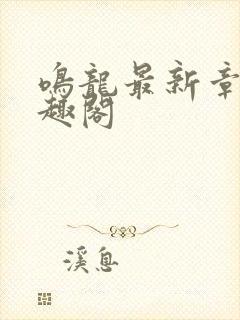 鸣龍最新章
趣閣
溪息